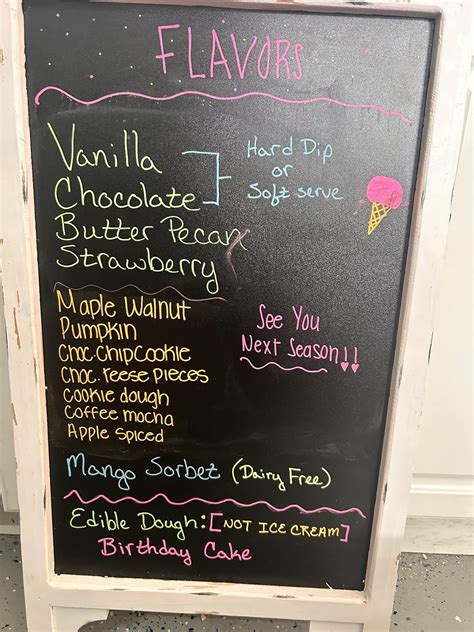 FLAVORS
Vanilla
Chocolate
Hard Dip
or
Soft serve
Butter Pecan
Strawberry
Maple Walnut
Pumpkin
Choc.chipcookie
Choc. reese pieces
Cookie dough
Coffee mocha
Apple spiced
See You
Next Season!!
Mango Sorbet (Dairy Free)
Edible Dough: [NOT ICE CREAM]
Birthday Cake